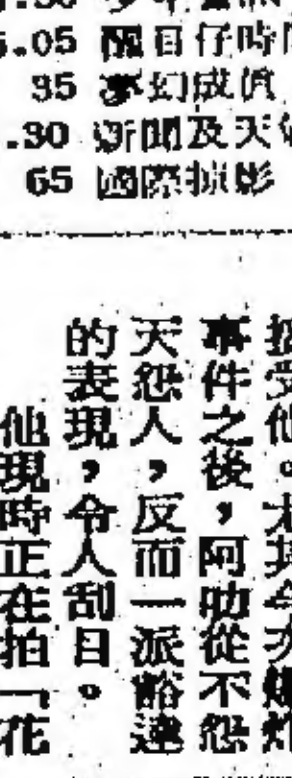 .05 醒目仔時
35 夢幻成真
.30 新聞及天
65 國際掠影
接受他。尤其今次爆炸
事件之後，阿助從不怨
天怨人，反而一派豁達
的表現，令人刮目。
他現時正在拍「花